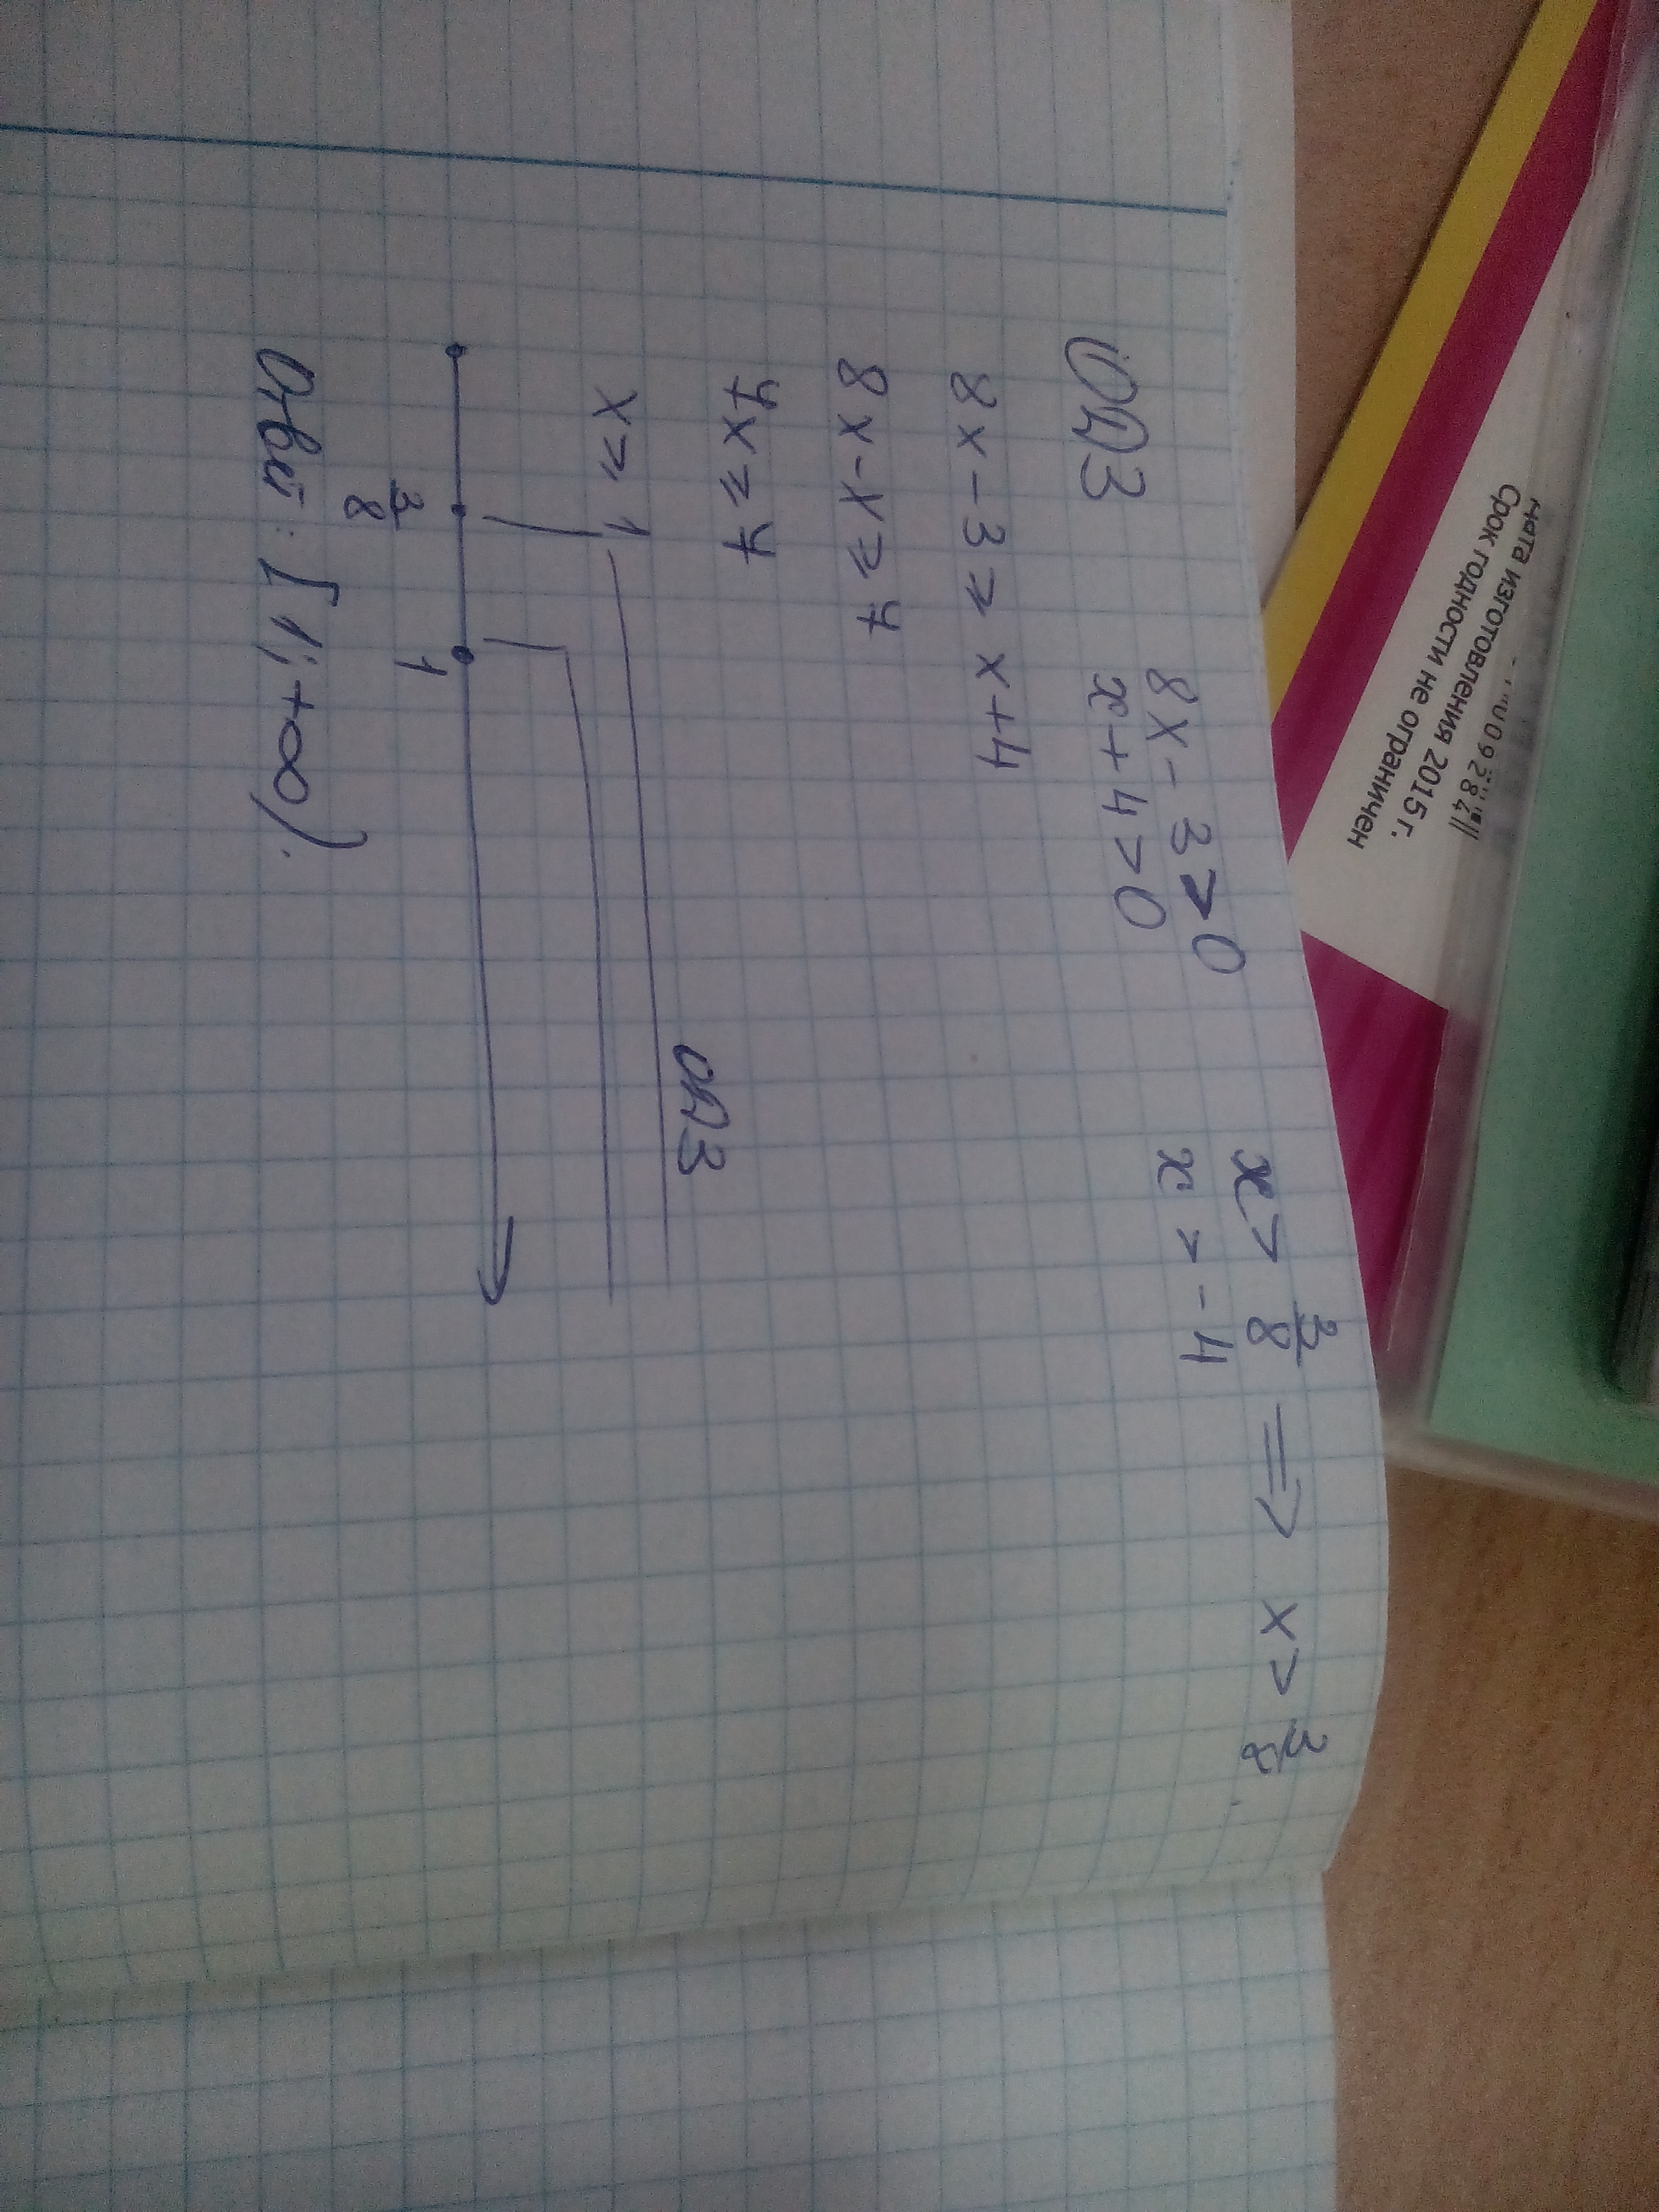 ОДЗ 8x - 3 > 0 x > 3/8 => x > 3/8
x + 4 > 0 x > -4
8x - 3 ≥ x + 4
8x - x ≥ 7
7x ≥ 7
x ≥ 1
ОДЗ
3/8 1
Ответ: [1; +∞).
ната изготовления 2015 г.
Срок годности не ограничен